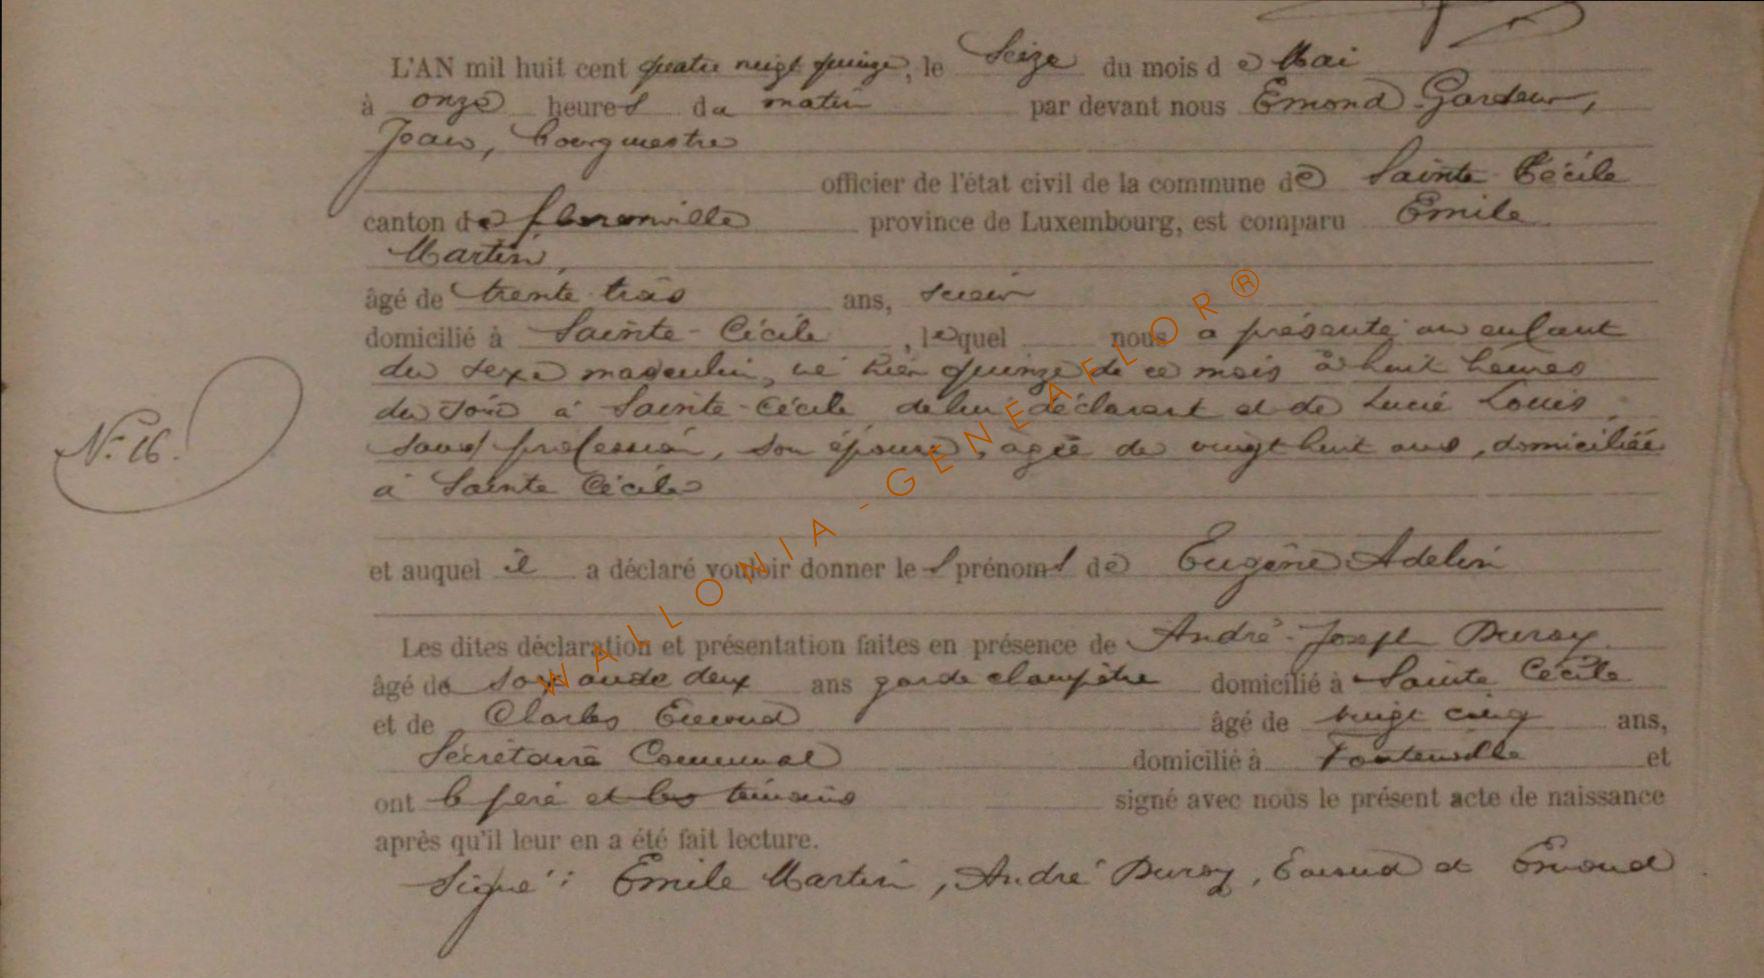 L'AN mil huit cent quatre vingt quinze, le Seize du mois de Mai
à onze heures du matin par devant nous Emond
Jean, bourgmestre
officier de l'état civil de la commune de Sainte Cécile
canton de florenville province de Luxembourg, est comparu Emile
Martin,
âgé de trente trois ans,
domicilié à Sainte-Cécile, lequel nous a présenté un enfant
du sexe masculin, né hier quinze de ce mois à huit heures
du soir à Sainte-Cécile de lui déclarant et de Lucie Louis
sans profession, son épouse, agée de vingt huit ans, domiciliée
N° 16.
à Sainte Cécile
et auquel il a déclaré vouloir donner les prénoms de Eugène Adelin
Les dites déclaration et présentation faites en présence de André-Joseph Duroy
âgé de soixante deux ans garde champêtre domicilié à Sainte Cécile
et de Charles Emond âgé de vingt cinq ans,
Secrétaire Communal domicilié à Fontenoille et
ont le père et les témoins signé avec nous le présent acte de naissance
après qu'il leur en a été fait lecture.
Signé: Emile Martin, André Duroy, Emond et Emond
WALLONIA-GENEAFLOR®